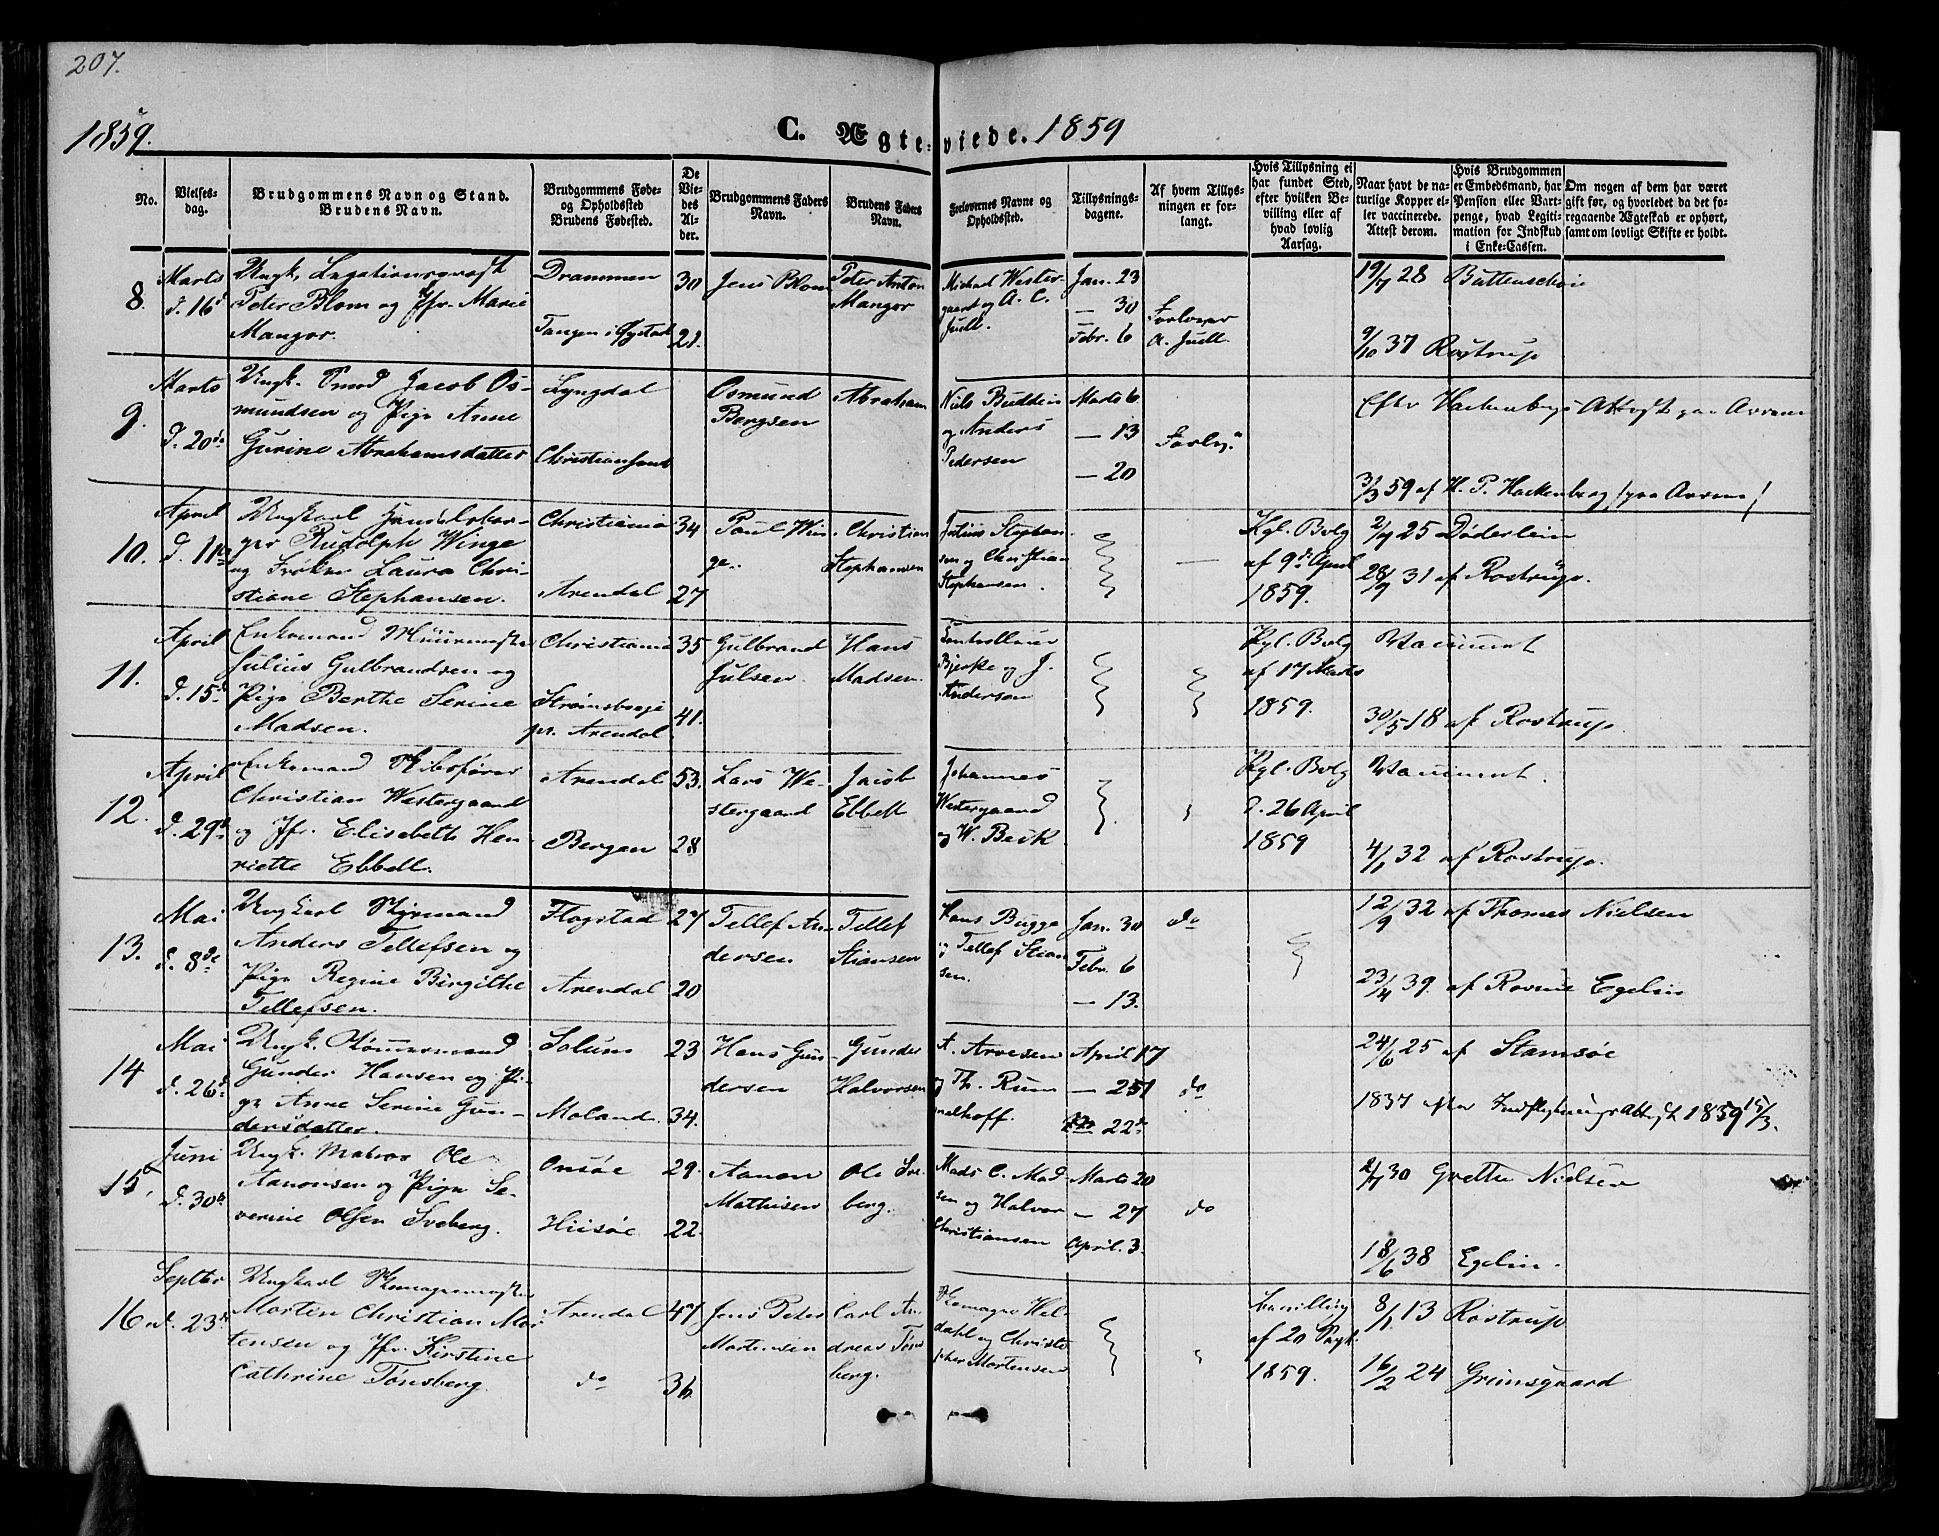 207.
1859.
C. Ægteviede. 1859
No.
Vielsesdag.
Brudgommens Navn og Stand.
Brudens Navn.
Brudgommens Føde-
og Opholdssted
Brudens Fødested.
De
Vie-
des
Al-
der.
Brudgommens Faders
Navn.
Brudens Faders
Navn.
Forlovernes Navne og
Opholdssted.
Tillysnings-
dagene.
Af hvem Tillys-
ningen er for-
langt.
Hvis Tillysning ei
har fundet Sted,
efter hvilken Be-
villing eller af
hvad lovlig
Aarsag.
Naar havt de na-
turlige Kopper el-
ler vaccinerede.
Attest derom.
Hvis Brudgommen
er Embedsmand, har
Pension eller Vart-
penge, hvad Legiti-
mation for Indskud
i Enke-Cassen.
Om nogen af dem har været
gift før, og hvorledet da det fo-
regaaende Ægteskab er ophørt,
samt om lovligt Skifte er holdt.
8.
Marts
d. 16d
Ungk.
Peter Blom og Jfr. Marie
Mangor.
Drammen
Tangen i
30
21.
Jens Blom
Peter Anton
Mangor
Michael Wester-
gaard og A. C.
Juell.
Jan. 23
— 30
Febr. 6
Forlover
A. Juell.
19/7 28
9/10 37 Rostrup
9.
Marts
d. 20de
Ungk. Jacob Os-
mundsen og Pige Anne
Gurine Abrahamsdatter
Lyngdal
Christiansand
Osmund
Bergsen
Abraham
Niels
og Anders
Pedersen
Marts 6
— 13
— 20
Forlov.
Efter Hackenbergs Attest
3/3 59 af H. P. Hackenberg
10.
April
d. 11te
Ungkarl Handelsbor-
ger Rudolph Winge
og Frøken Laura Chri-
stiane Stephansen.
Christiania
Arendal
34
27
Paul Win-
ge.
Christian
Stephansen
Julius Stephan-
sen og Christian
Stephansen.
—
Kgl. Bvlg
af 9d April
1859.
2/9 25 Døderlein
28/9 31 af Rostrup.
11.
April
d. 15d
Enkemand Muurmester
Julius Gulbrandsen og
Pige Berthe Serine
Madsen.
Christiania
Strømsboeje
pr. Arendal
35
41.
Gulbrand
Julsen.
Hans
Madsen.
Controlleur
Bjerke og J.
Anderson
Kgl. Bvlg
af 17 Marts
1859.
Vaccineret
30/5 18 af Rostrup.
12.
April
d. 29d
Enkemand Skibsfører
Christian Westergaard
og Jfr. Elisabeth Hen-
riette Ebbell.
Arendal
Bergen
53.
28
Lars We-
stergaard
Jacob
Ebbell
Johannes
Westergaard
og W. Beck
Kgl. Bvlg
d. 26 April
1859
Vaccineret.
4/1 32 af Rostrup.
13.
Mai
d. 8de
Ungkarl Styrmand
Anders Tellefsen og
Pige Regine Birgithe
Tellefsen.
Flagstad
Arendal
27
20
Tellef An-
dersen
Tellef
Stiansen
Hans Bugge
og Tellef Stian-
sen.
Jan. 30
Febr. 6
— 13.
do
12/9 32 af Thomas Nielsen
23/14 39. af Egelin
14
Mai
d. 26d
Ungk. Tømmermand
Gunder Hansen og Pi-
ge Anne Serine Gun-
dersdatter
Solum
Moland.
23
34.
Hans Gun-
dersen
Gunder
Halvorsen
A. Arvesen
og Th. Rum-
melhoff.
April 17
— 25
22d
do
24/6 25 af Stamsøe
1837 efter Indflytningsattest 1859 15/3.
15.
Juni
d. 30te
Ungk. Matros Ole
Aanonsen og Pige Se-
verine Olsen Sveberg.
Onsøe
Hiisøe
29.
22.
Aanon
Mathisen
Ole Sve-
berg.
Mads C. Mad-
sen og Halvor
Christiansen
Marts 20
— 27
April. 3.
do
2/7 30 Grette Nielsen
18/6 38 Egelin.
16.
Septbr
d. 23d
Ungkarl Skomagermester
Morten Christian Mor-
tensen og Jfr. Kirstine
Cathrine Tønsberg.
Arendal
do
47
36
Jens Peter
Mortensen
Carl An-
dreas Tøns-
berg.
Skomager Hel-
dahl og Christo-
pher Mortensen
Bevilling
af 20
1859.
8/1 13 Rostrup
16/2 24 Grimsgaard